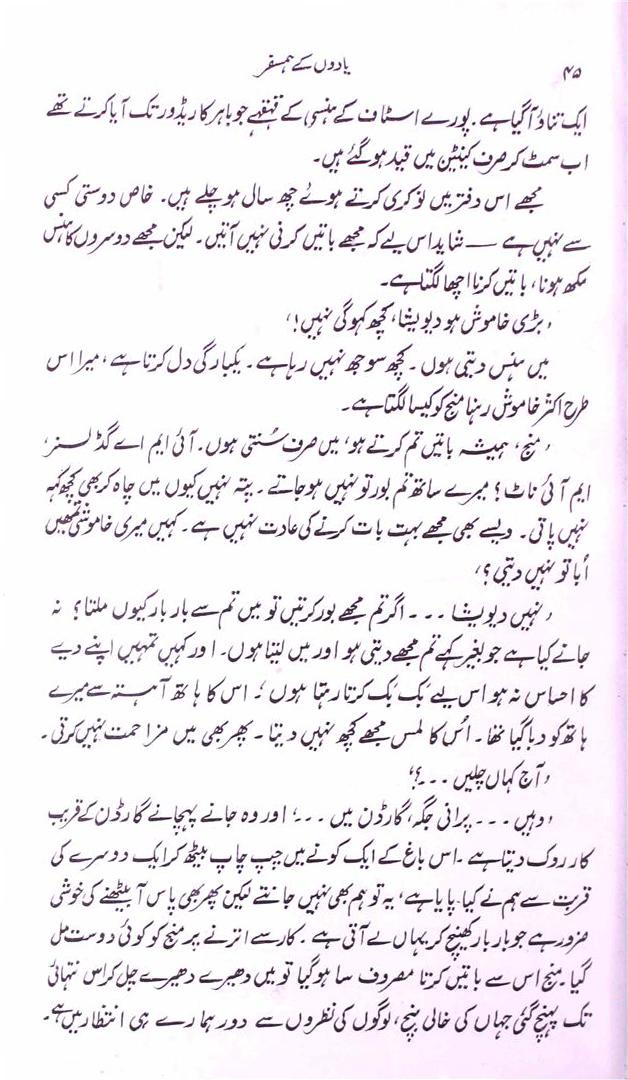 ۴۵
یادوں کے ہمسفر
ایک تناؤ آگیا ہے۔ پورے اسٹاف کے ہنسی کے قہقہے جو باہر کاریڈور تک آیا کرتے تھے
اب سمٹ کر صرف کینٹین میں قید ہو گئے ہیں۔
مجھے اس دفتر میں نوکری کرتے ہوئے چھ سال ہو چلے ہیں۔ خاص دوستی کسی
سے نہیں ہے — شاید اس لیے کہ مجھے باتیں کرنی نہیں آتیں۔ لیکن مجھے دوسروں کا ہنس
مکھ ہونا، باتیں کرنا اچھا لگتا ہے۔
'بڑی خاموش ہو دیویشا، کچھ کہو گی نہیں!'
میں ہنس دیتی ہوں۔ کچھ سوجھ نہیں رہا ہے۔ یکبارگی دل کرتا ہے، میرا اس
طرح اکثر خاموش رہنا منج کو کیسا لگتا ہے۔
'منج، ہمیشہ باتیں تم کرتے ہو، میں صرف سُنتی ہوں۔ آئی ایم اے گڈ لسنر،
ایم آئی ناٹ؟ میرے ساتھ تم بور تو نہیں ہو جاتے۔ پتہ نہیں کیوں میں چاہ کر بھی کچھ کہہ
نہیں پاتی۔ ویسے بھی مجھے بہت بات کرنے کی عادت نہیں ہے۔ کہیں میری خاموشی تمھیں
اُبا تو نہیں دیتی؟'
'نہیں دیویشا ... اگر تم مجھے بور کرتیں تو میں تم سے بار بار کیوں ملتا؟ نہ
جانے کیا ہے جو بغیر کہے تم مجھے دیتی ہو اور میں لیتا ہوں۔ اور کہیں تمہیں اپنے دیے
کا احساس نہ ہو اس لیے بک بک کرتا رہتا ہوں'۔ اس کا ہاتھ آہستہ سے میرے
ہاتھ کو دبا گیا تھا۔ اُس کا لمس مجھے کچھ نہیں دیتا۔ پھر بھی میں مزاحمت نہیں کرتی۔
'آج کہاں چلیں ...؟'
'وہیں ... پرانی جگہ، گارڈن میں ...' اور وہ جانے پہچانے گارڈن کے قریب
کار روک دیتا ہے۔ اس باغ کے ایک کونے میں چپ چاپ بیٹھ کر ایک دوسرے کی
قربت سے ہم نے کیا پایا ہے، یہ تو ہم بھی نہیں جانتے لیکن پھر بھی پاس آ بیٹھنے کی خوشی
ضرور ہے جو بار بار کھینچ کر یہاں لے آتی ہے۔ کار سے اترنے پر منج کو کوئی دوست مل
گیا۔ منج اس سے باتیں کرتا مصروف سا ہو گیا تو میں دھیرے دھیرے چل کر اس تنہائی
تک پہنچ گئی جہاں کی خالی بنچ، لوگوں کی نظروں سے دور ہمارے ہی انتظار میں ہے۔